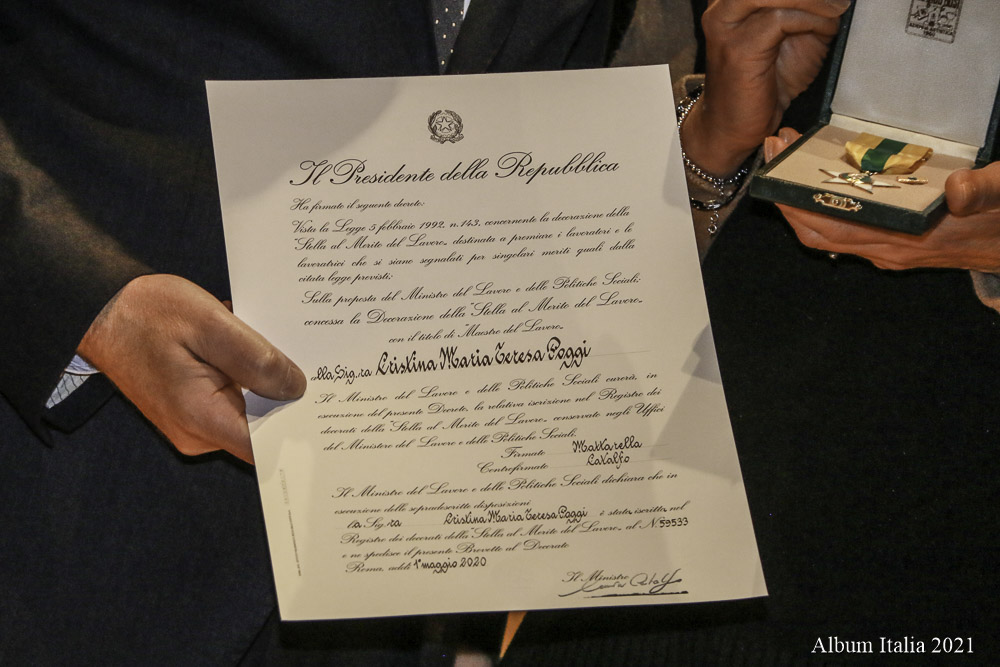 Il Presidente della Repubblica
Ha firmato il seguente decreto:
Vista la Legge 5 febbraio 1992, n.143, concernente la decorazione della
"Stella al Merito del Lavoro", destinata a premiare i lavoratori e le
lavoratrici che si siano segnalati per singolari meriti quali dalla
citata legge previsti;
Sulla proposta del Ministro del Lavoro e delle Politiche Sociali;
concessa la Decorazione della "Stella al Merito del Lavoro"
con il titolo di "Maestro del Lavoro"
lla Sig.ra Cristina Maria Teresa Poggi
Il Ministro del Lavoro e delle Politiche Sociali curerà, in
esecuzione del presente Decreto, la relativa iscrizione nel Registro dei
decorati della "Stella al Merito del Lavoro", conservato negli Uffici
del Ministero del Lavoro e delle Politiche Sociali.
Firmato Mattarella
Controfirmato Catalfo
Il Ministro del Lavoro e delle Politiche Sociali dichiara che in
esecuzione delle sopradescritte disposizioni
la Sig.ra Cristina Maria Teresa Poggi è stata iscritta nel
Registro dei decorati della "Stella al Merito del Lavoro" al N. 59533
e ne spedisce il presente Brevetto al Decorato
Roma, addì 1° maggio 2020
Il Ministro
Album Italia 2021